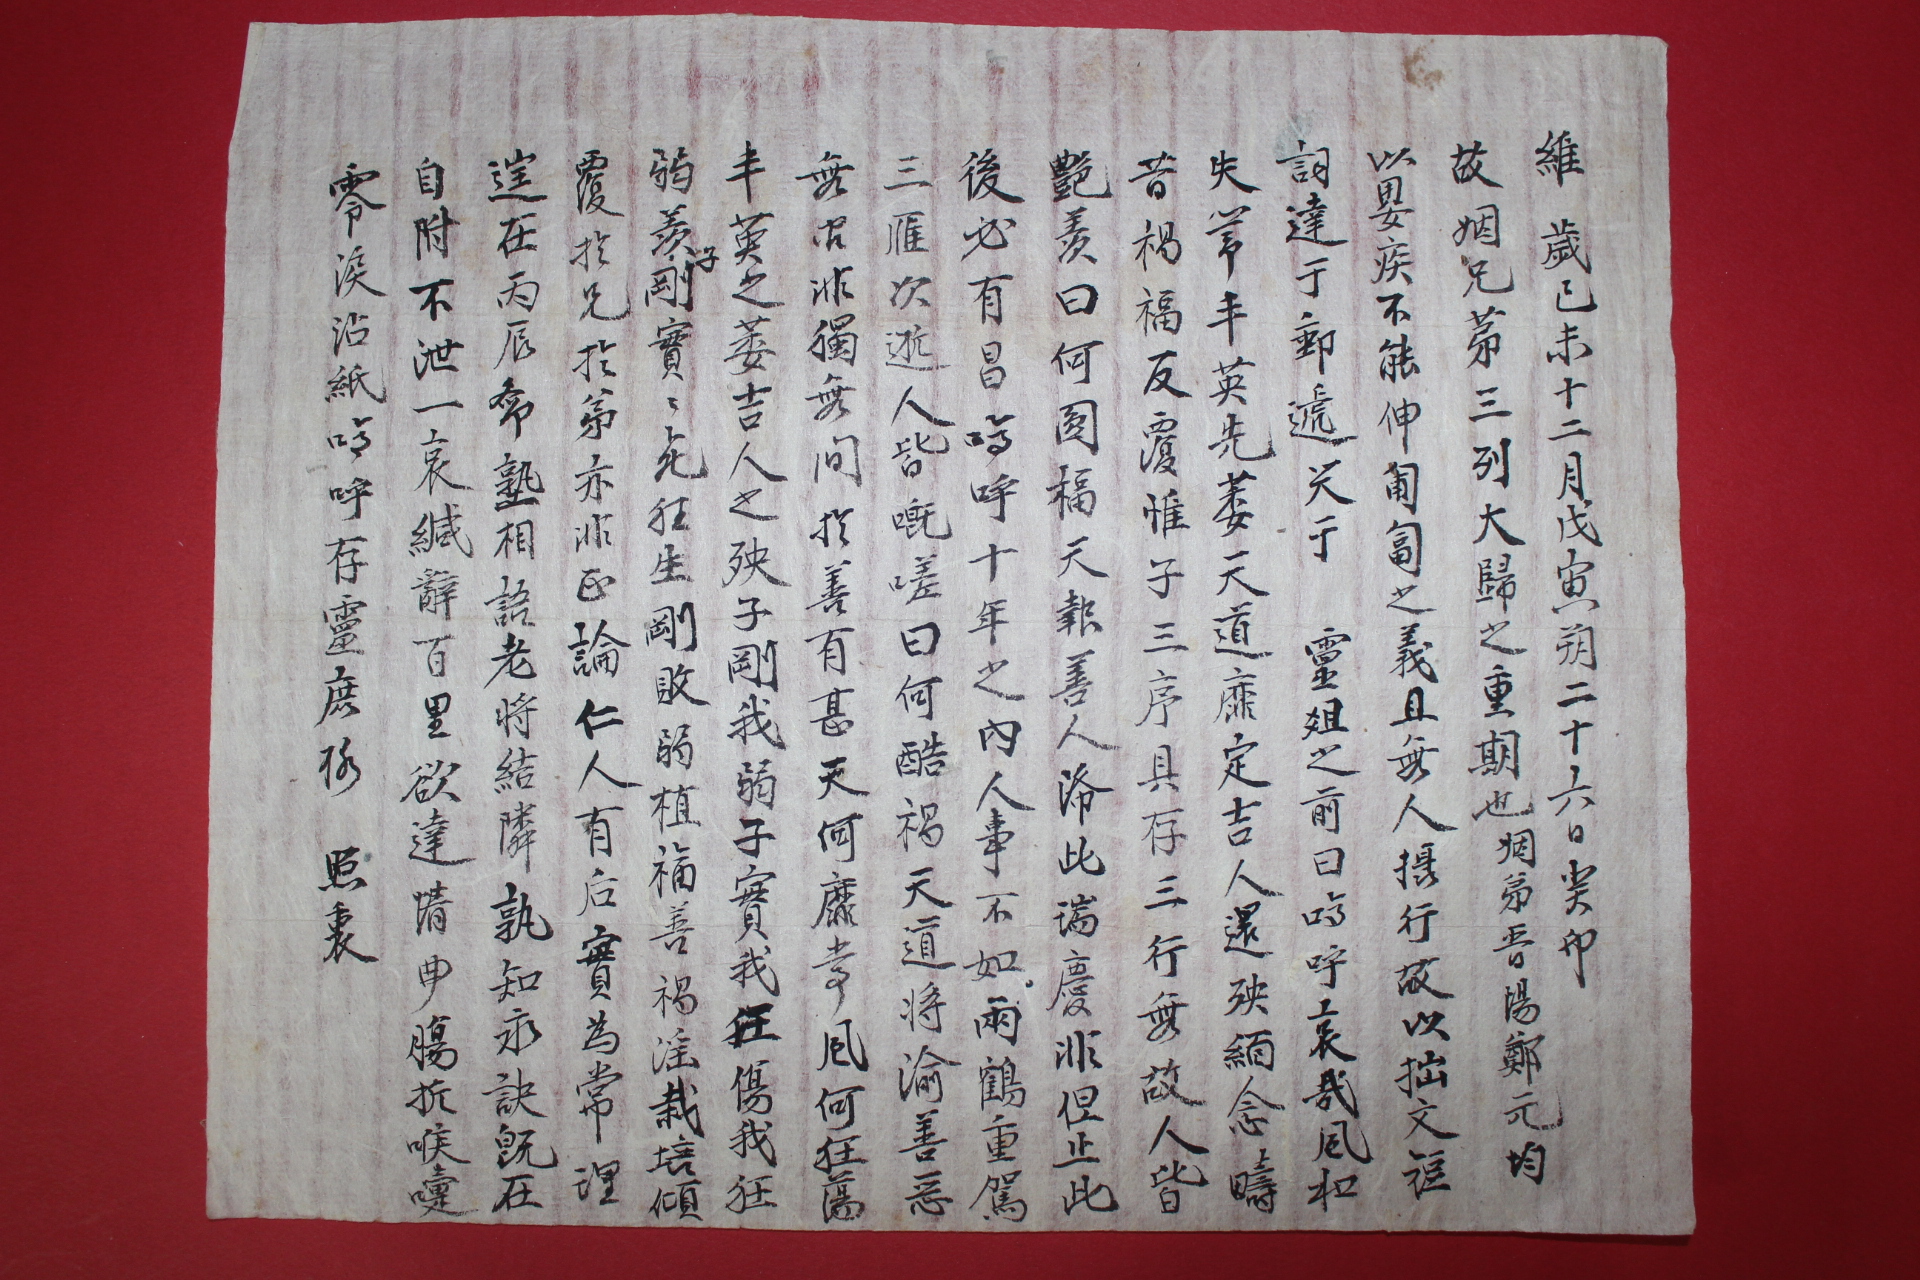 維 歲己未十二月戊寅朔二十六日癸卯
故姻兄第三列大歸之重期也姻弟晋陽鄭元均
以婴疾不能伸匍匐之義且無人攝行故以拙文
詞達于郵遞哭于 靈俎之前曰嗚呼哀哉風和
失常丰英先萎天道靡定吉人還殃緬念疇
昔禍福反覆惟子三序具存三行無故人皆
艷羨曰何圓福天報善人流此瑞慶非但止此
後必有昌嗚呼十年之內人事不如兩鶴重駕
三雁次逝人皆嘅嗟曰何酷禍天道將渝善惡
無召非獨無间於善有甚天何靡常風何狂蕩
丰英之萎吉人之殃子剛我弱子實我狂傷我狂
弱羨子剛實〻先狂生剛敗弱植福善禍淫栽培傾
覆於兄於弟亦非正論仁人有后實為常理
逞在丙辰希塾相語老將結隣孰知永訣旣在
自附不泄一哀緘辭百里欲達情申腸折喉嚏
零淚沾紙嗚呼存靈庶 照衷